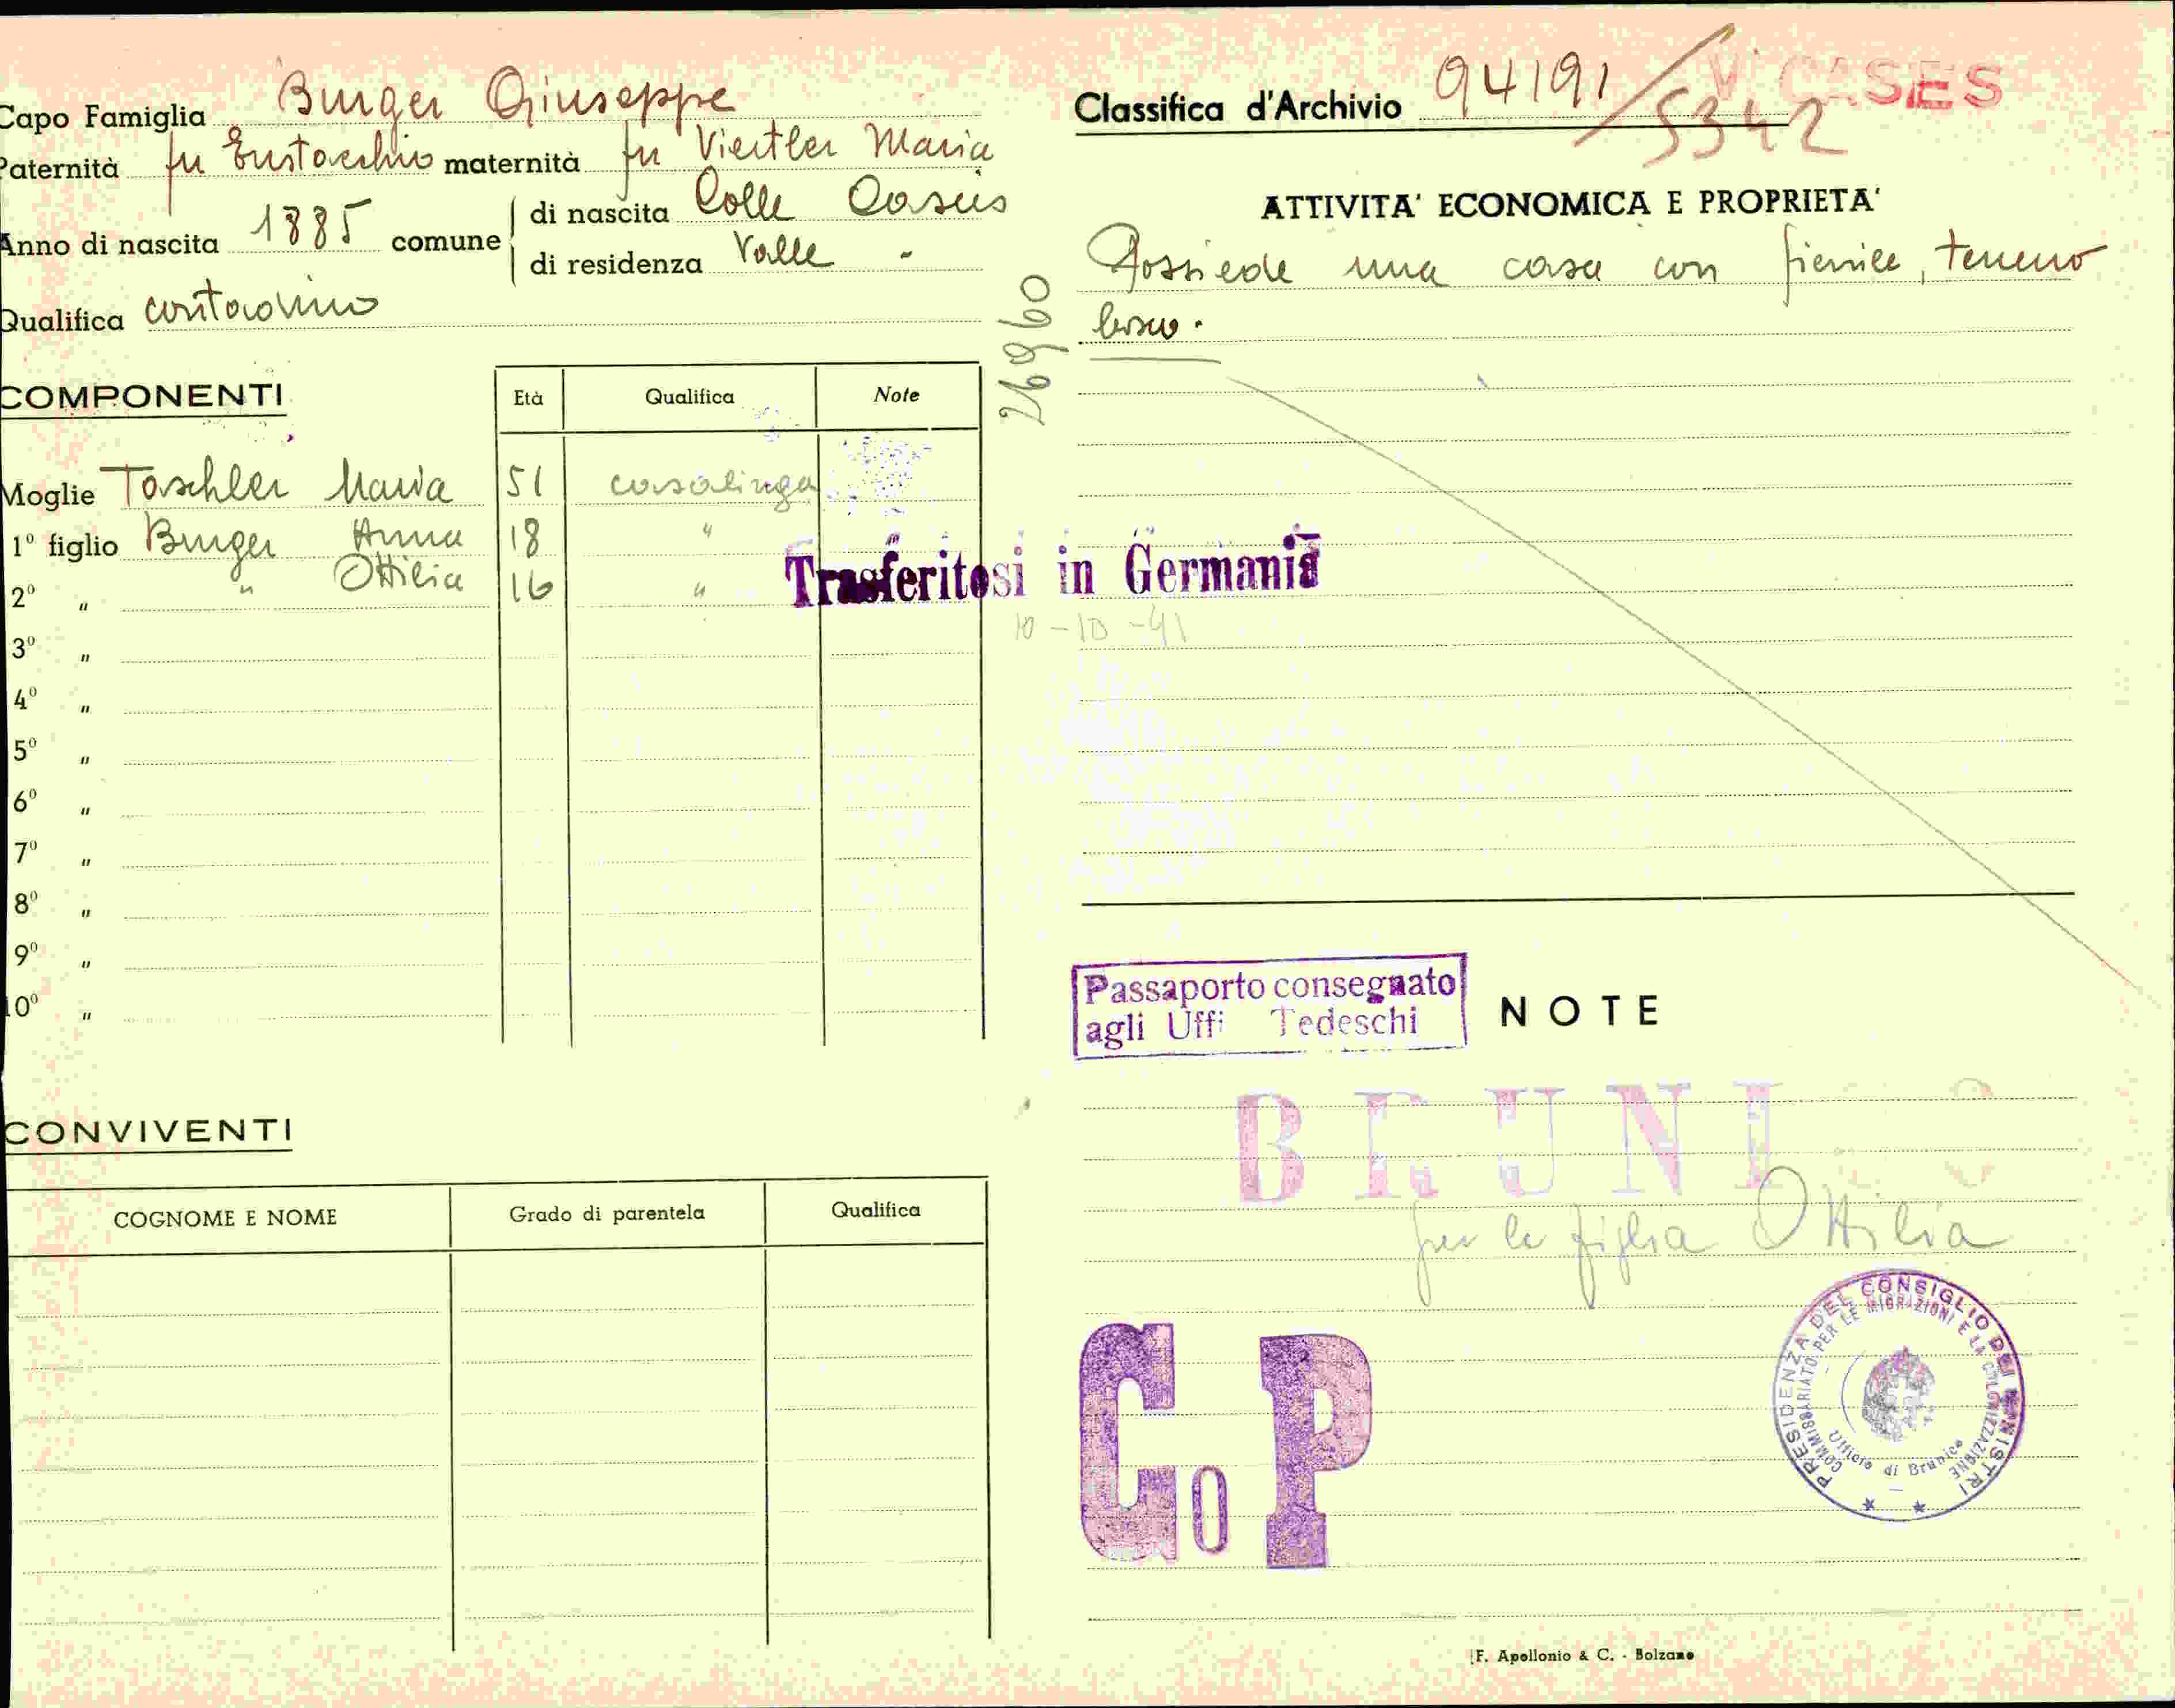 Capo Famiglia Burger Giuseppe
Paternità fu Eustacchio maternità fu Viertler Maria
Anno di nascita 1885 comune di nascita Colle Casies
di residenza Valle "
Qualifica contadino
COMPONENTI
Età Qualifica Note
Moglie Taschler Maria 51 casalinga
1° figlio Burger Anna 18 "
2° " " Ottilia 16 "
3° "
4° "
5° "
6° "
7° "
8° "
9° "
10° "
Trasferitosi in Germania
10-10-41
26960
CONVIVENTI
COGNOME E NOME Grado di parentela Qualifica
Classifica d'Archivio 94191/5342
CASES
ATTIVITA' ECONOMICA E PROPRIETA'
Possiede una casa con fienile, terreno
bosco.
Passaporto consegnato
agli Uffi Tedeschi
NOTE
BRUNICO
per la figlia Ottilia
G o P
PRESIDENZA DEL CONSIGLIO DEI MINISTRI
COMMISSARIATO PER LE MIGRAZIONI E LA COLONIZZAZIONE
Ufficio di Brunico
F. Apollonio & C. - Bolzano